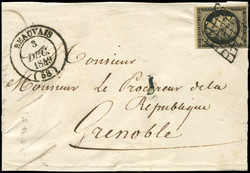 BEAUVAIS
3
DÉC.
1849
(58)
Monsieur
Monsieur Le Procureur de la
République
Grenoble